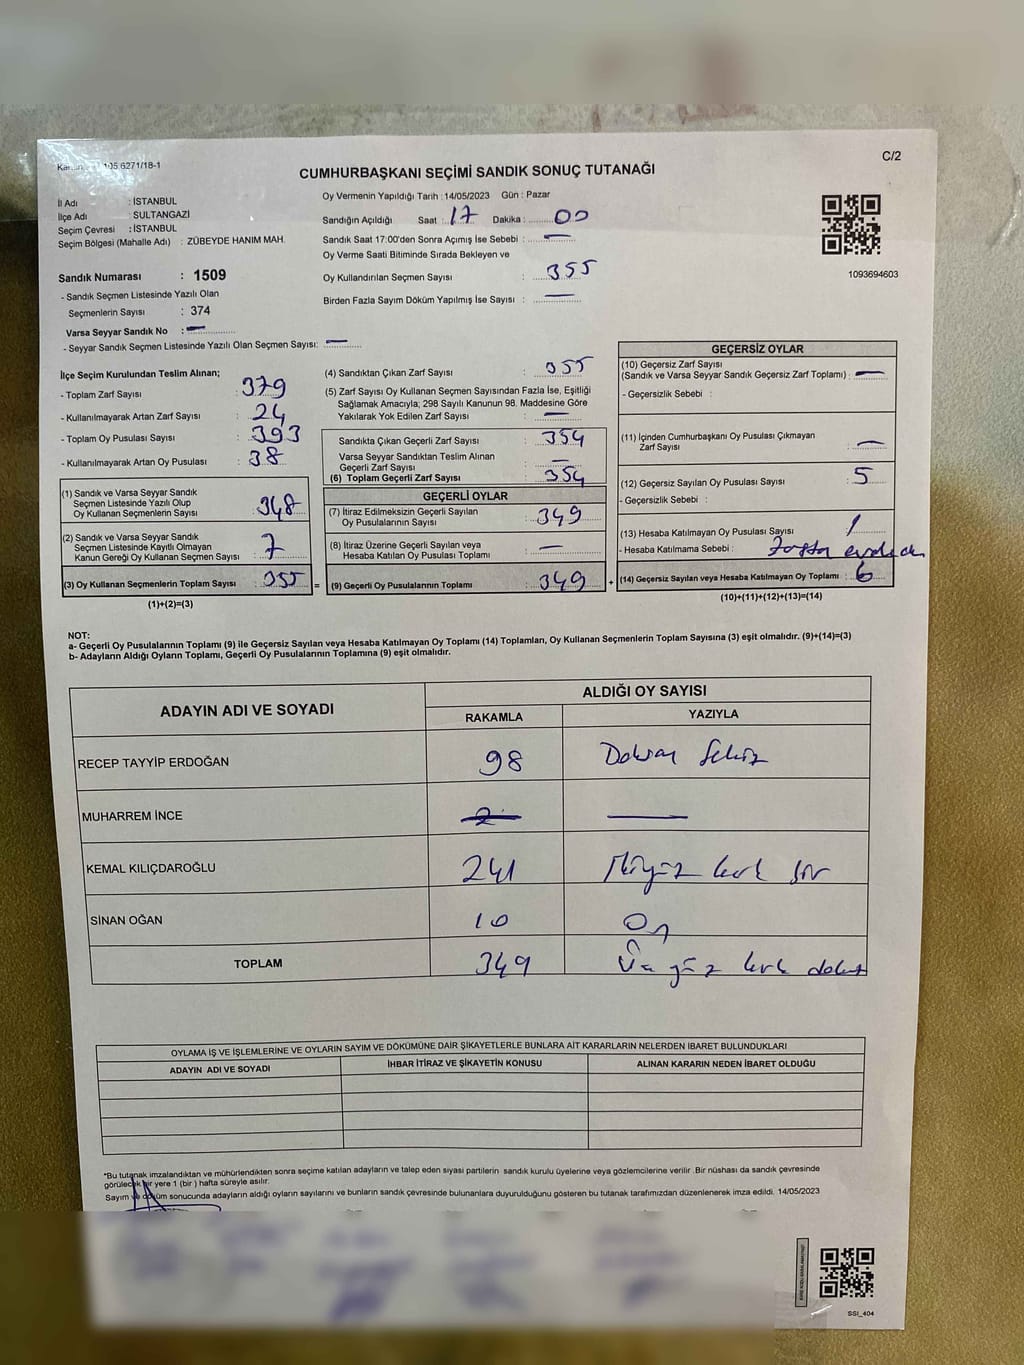 105 6271/18-1
C/2
CUMHURBAŞKANI SEÇİMİ SANDIK SONUÇ TUTANAĞI
İl Adı : İSTANBUL
İlçe Adı : SULTANGAZİ
Seçim Çevresi : İSTANBUL
Seçim Bölgesi (Mahalle Adı) : ZÜBEYDE HANIM MAH.
Sandık Numarası : 1509
- Sandık Seçmen Listesinde Yazılı Olan
Seçmenlerin Sayısı : 374
Varsa Seyyar Sandık No : —
- Seyyar Sandık Seçmen Listesinde Yazılı Olan Seçmen Sayısı: —
Oy Vermenin Yapıldığı Tarih : 14/05/2023 Gün : Pazar
Sandığın Açıldığı Saat : 17 Dakika : 00
Sandık Saat 17:00'den Sonra Açımış İse Sebebi : —
Oy Verme Saati Bitiminde Sırada Bekleyen ve
Oy Kullandırılan Seçmen Sayısı : 355
Birden Fazla Sayım Döküm Yapılmış İse Sayısı : —
1093694603
İlçe Seçim Kurulundan Teslim Alınan;
- Toplam Zarf Sayısı : 379
- Kullanılmayarak Artan Zarf Sayısı : 24
- Toplam Oy Pusulası Sayısı : 393
- Kullanılmayarak Artan Oy Pusulası : 38
(1) Sandık ve Varsa Seyyar Sandık
Seçmen Listesinde Yazılı Olup
Oy Kullanan Seçmenlerin Sayısı : 348
(2) Sandık ve Varsa Seyyar Sandık
Seçmen Listesinde Kayıtlı Olmayan
Kanun Gereği Oy Kullanan Seçmen Sayısı : 7
(3) Oy Kullanan Seçmenlerin Toplam Sayısı : 355 =
(1)+(2)=(3)
(4) Sandıktan Çıkan Zarf Sayısı : 355
(5) Zarf Sayısı Oy Kullanan Seçmen Sayısından Fazla İse, Eşitliği
Sağlamak Amacıyla; 298 Sayılı Kanunun 98. Maddesine Göre
Yakılarak Yok Edilen Zarf Sayısı : —
Sandıkta Çıkan Geçerli Zarf Sayısı : 354
Varsa Seyyar Sandıktan Teslim Alınan
Geçerli Zarf Sayısı : —
(6) Toplam Geçerli Zarf Sayısı : 354
GEÇERLİ OYLAR
(7) İtiraz Edilmeksizin Geçerli Sayılan
Oy Pusulalarının Sayısı : 349
(8) İtiraz Üzerine Geçerli Sayılan veya
Hesaba Katılan Oy Pusulası Toplamı : —
(9) Geçerli Oy Pusulalarının Toplamı : 349 +
GEÇERSİZ OYLAR
(10) Geçersiz Zarf Sayısı
(Sandık ve Varsa Seyyar Sandık Geçersiz Zarf Toplamı) : —
- Geçersizlik Sebebi :
(11) İçinden Cumhurbaşkanı Oy Pusulası Çıkmayan
Zarf Sayısı : —
(12) Geçersiz Sayılan Oy Pusulası Sayısı : 5
- Geçersizlik Sebebi :
(13) Hesaba Katılmayan Oy Pusulası Sayısı : 1
- Hesaba Katılmama Sebebi :
(14) Geçersiz Sayılan veya Hesaba Katılmayan Oy Toplamı : 6
(10)+(11)+(12)+(13)=(14)
NOT:
a- Geçerli Oy Pusulalarının Toplamı (9) ile Geçersiz Sayılan veya Hesaba Katılmayan Oy Toplamı (14) Toplamları, Oy Kullanan Seçmenlerin Toplam Sayısına (3) eşit olmalıdır. (9)+(14)=(3)
b- Adayların Aldığı Oyların Toplamı, Geçerli Oy Pusulalarının Toplamına (9) eşit olmalıdır.
ADAYIN ADI VE SOYADI
ALDIĞI OY SAYISI
RAKAMLA YAZIYLA
RECEP TAYYİP ERDOĞAN 98 Doksan Sekiz
MUHARREM İNCE 2 —
KEMAL KILIÇDAROĞLU 241 İkiyüz kırk bir
SİNAN OĞAN 10 On
TOPLAM 349 Üç yüz kırk dokuz
OYLAMA İŞ VE İŞLEMLERİNE VE OYLARIN SAYIM VE DÖKÜMÜNE DAİR ŞİKAYETLERLE BUNLARA AİT KARARLARIN NELERDEN İBARET BULUNDUKLARI
ADAYIN ADI VE SOYADI İHBAR İTİRAZ VE ŞİKAYETİN KONUSU ALINAN KARARIN NEDEN İBARET OLDUĞU
*Bu tutanak imzalandıktan ve mühürlendikten sonra seçime katılan adayların ve talep eden siyasi partilerin sandık kurulu üyelerine veya gözlemcilerine verilir .Bir nüshası da sandık çevresinde
görülecek bir yere 1 (bir) hafta süreyle asılır.
Sayım ve döküm sonucunda adayların aldığı oyların sayılarını ve bunların sandık çevresinde bulunanlara duyurulduğunu gösteren bu tutanak tarafımızdan düzenlenerek imza edildi. 14/05/2023
SSI_404